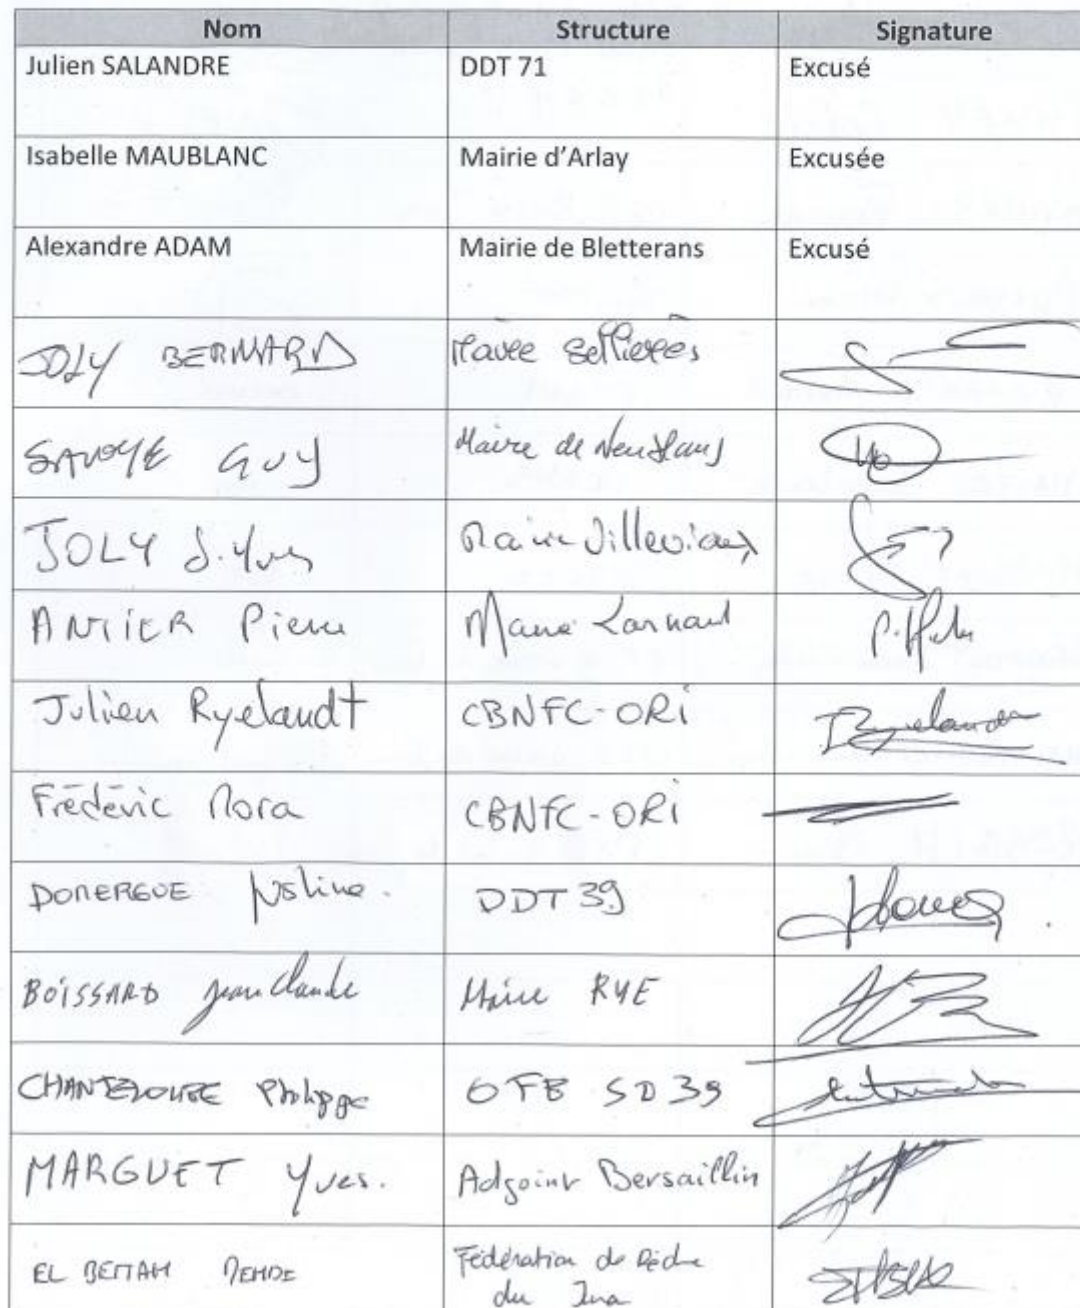 Nom Structure Signature
Julien SALANDRE DDT 71 Excusé
Isabelle MAUBLANC Mairie d'Arlay Excusée
Alexandre ADAM Mairie de Bletterans Excusé
JOLY BERNARD Sellières
SAVOYE GUY Maire de
JOLY J.Yves Maire
ANTIER Pierre Larnaud
Julien Ryelandt CBNFC-ORI Ryelandt
Frédéric Mora CBNFC-ORI
DOMERGUE Justine. DDT 39
BOISSARD Jean Claude Maire RYE
CHANTELOUBE Philippe OFB SD39
MARGUET Yves. Adjoint Bersaillin
EL Fédération de Pêche
du Jura